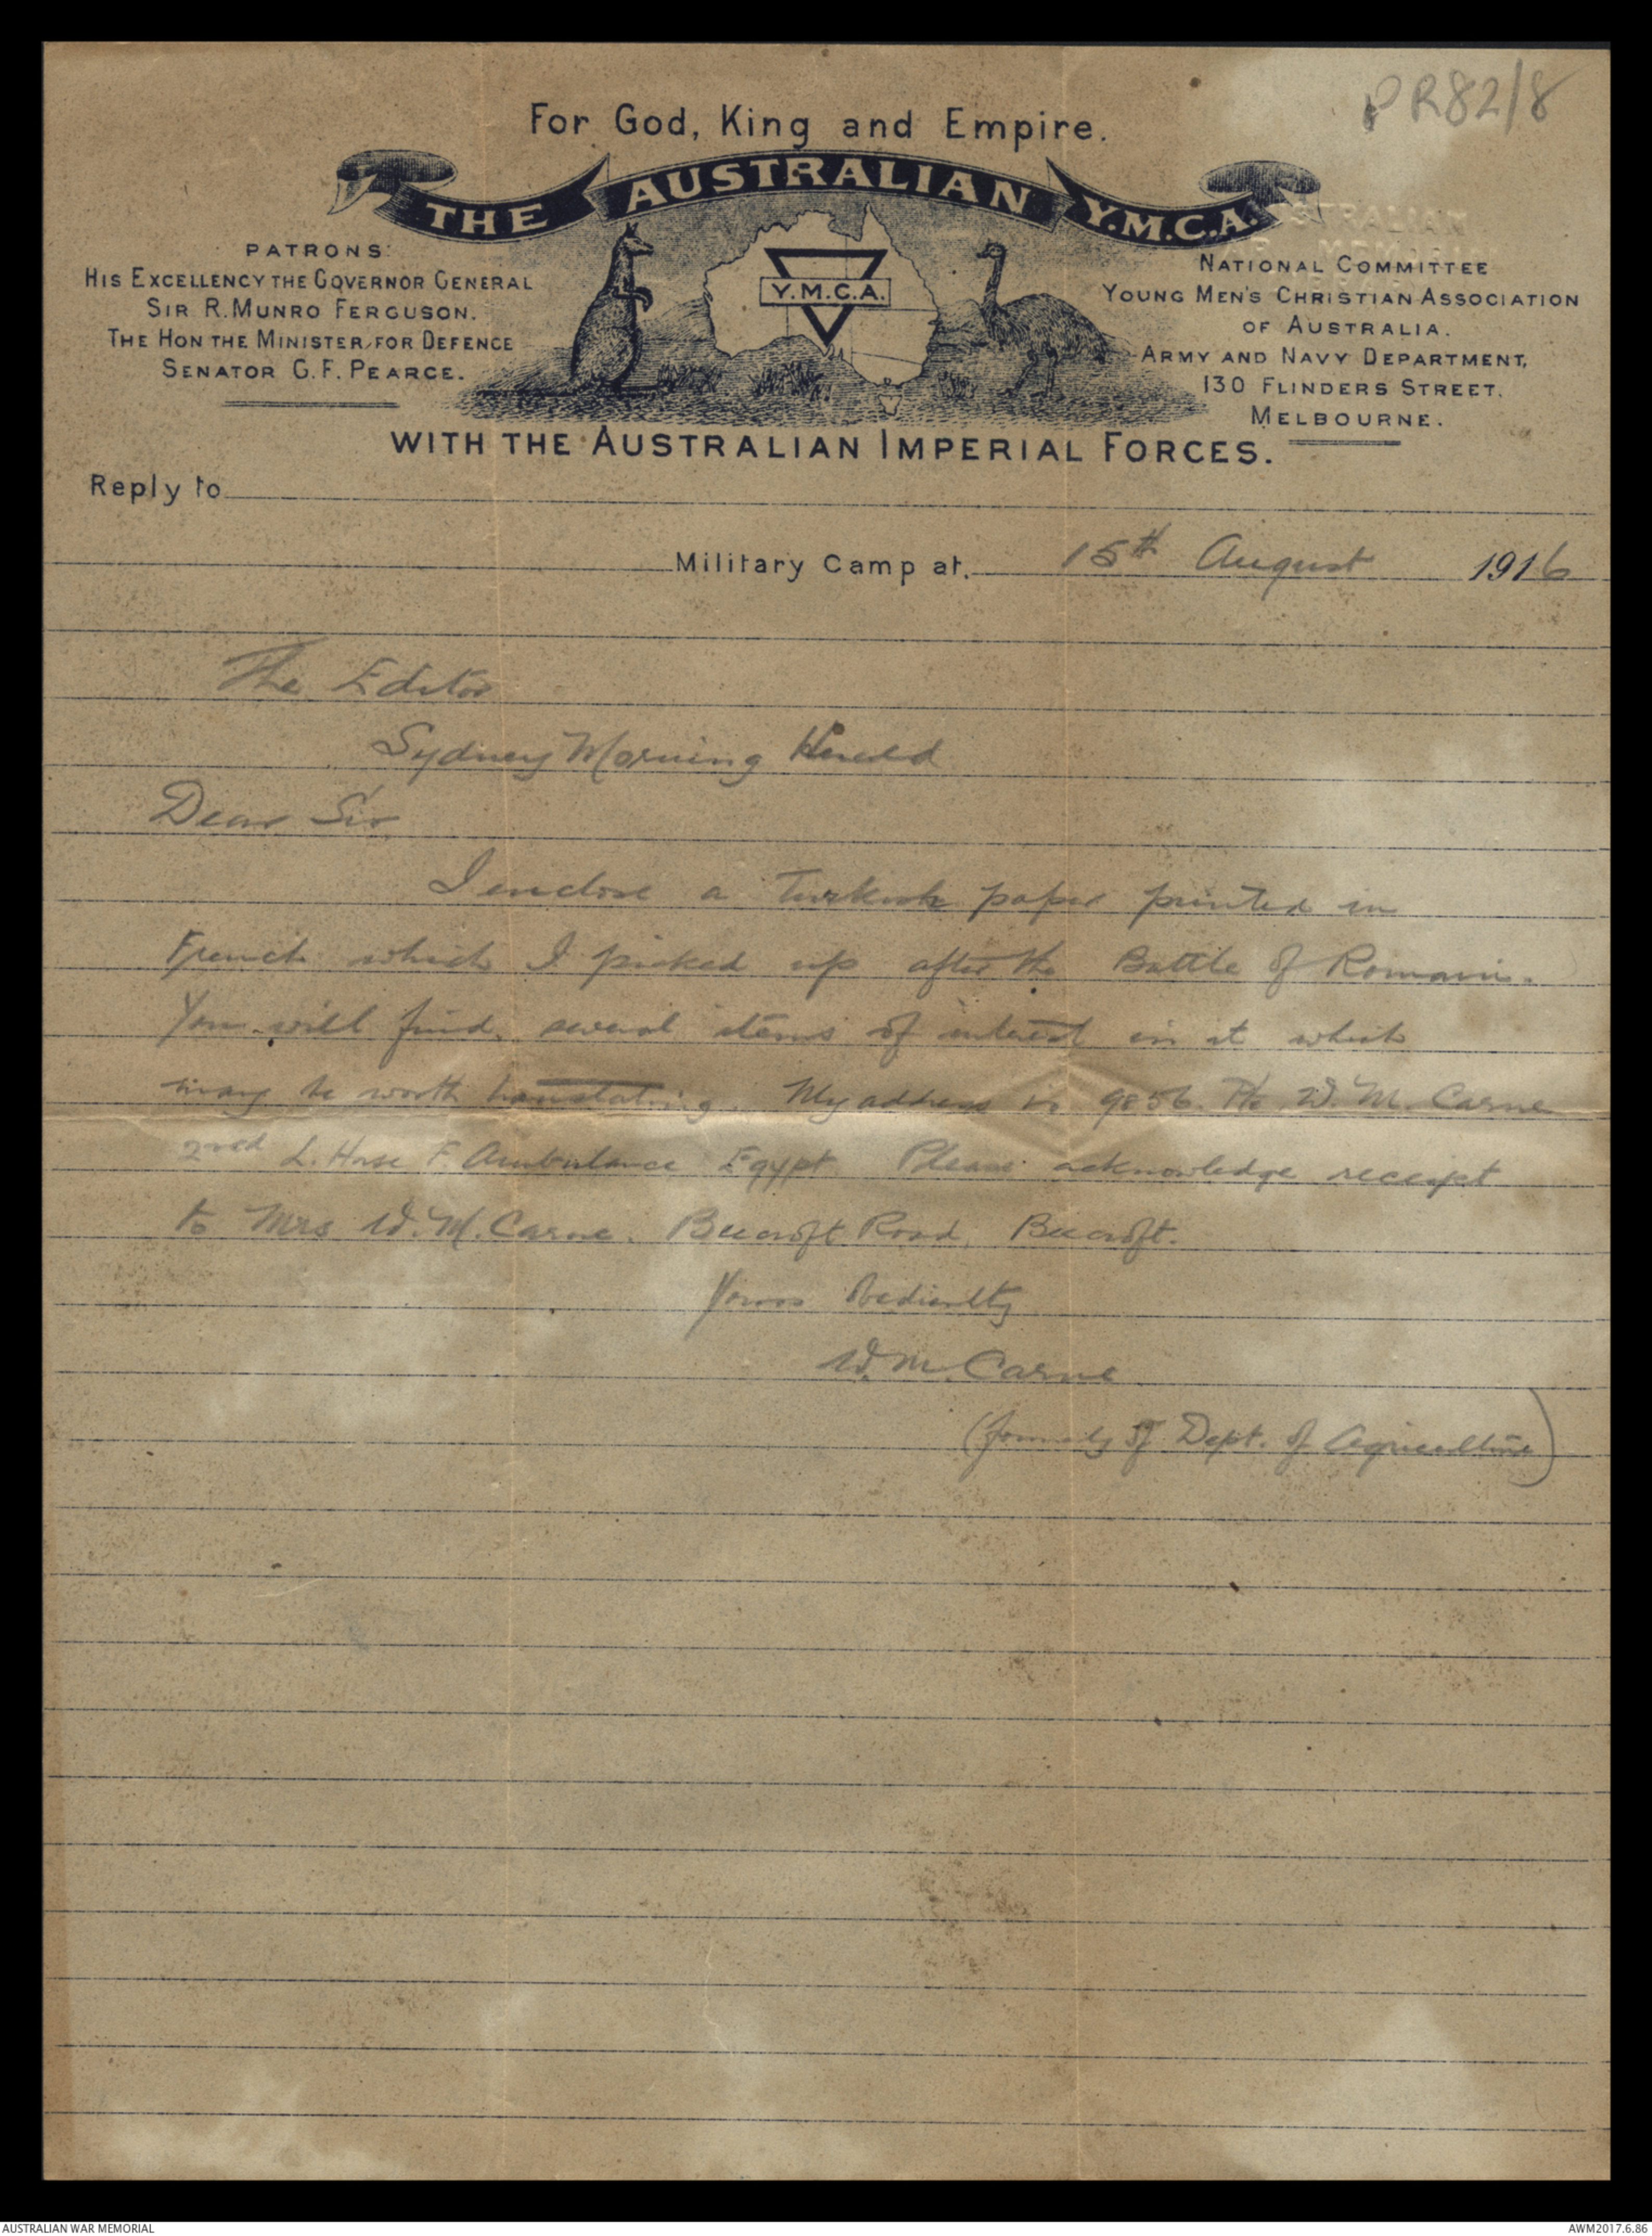 PR82/8
For God, King and Empire.
THE AUSTRALIAN Y.M.C.A.
PATRONS:
HIS EXCELLENCY THE GOVERNOR GENERAL
SIR R. MUNRO FERGUSON.
THE HON THE MINISTER FOR DEFENCE
SENATOR G. F. PEARCE.
Y.M.C.A.
NATIONAL COMMITTEE
YOUNG MEN'S CHRISTIAN ASSOCIATION
OF AUSTRALIA.
ARMY AND NAVY DEPARTMENT,
130 FLINDERS STREET.
MELBOURNE.
WITH THE AUSTRALIAN IMPERIAL FORCES.
Reply to
Military Camp at. 15th August 1916
The Editor
Sydney Morning Herald
Dear Sir
I enclose a Turkish paper printed in
French which I picked up after the Battle of Romani.
You will find several items of interest in it which
may be worth translating. My address is 9856 Pte W. M. Carne
2nd L. Horse F Ambulance Egypt Please acknowledge receipt
to Mrs W. M. Carne. Beecroft Road, Beecroft.
Yours Obediently
W. M. Carne
(formerly of Dept. of Agriculture)
AUSTRALIAN WAR MEMORIAL
AWM2017.6.86